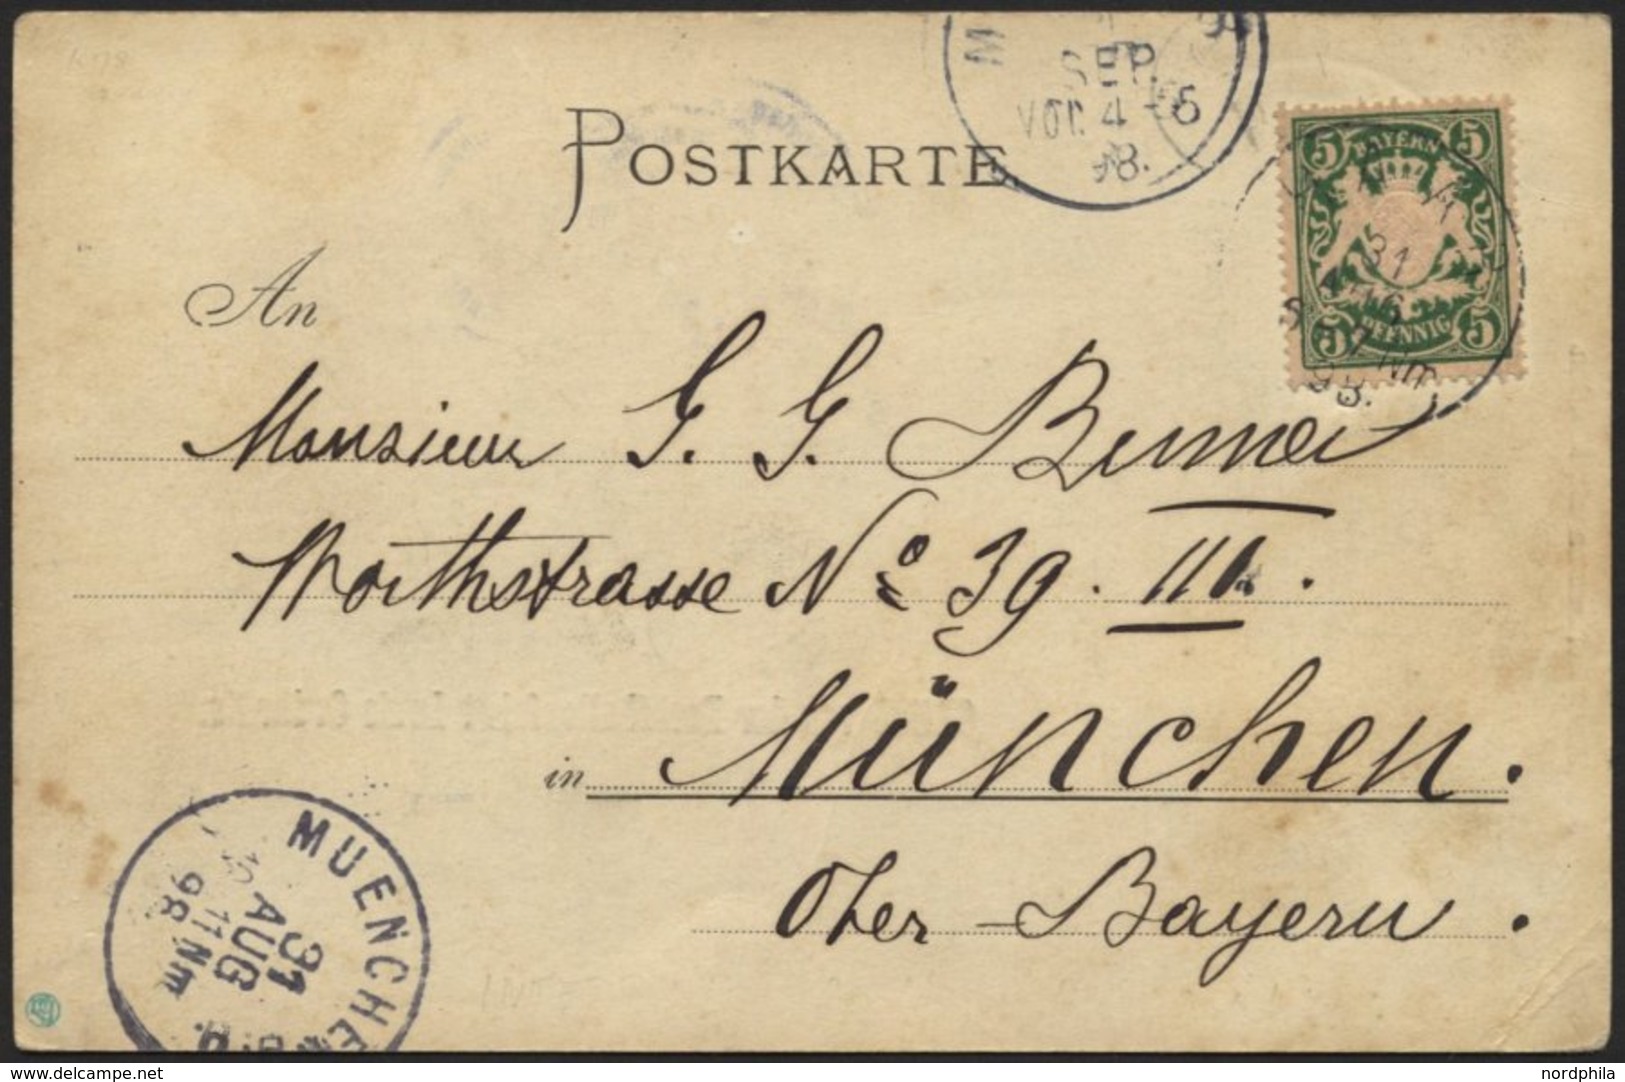 SEP.
Vor. 4-5
98.
POSTKARTE
5 BAYERN 5
5 PFENNIG 5
31
AUG
6-7 Nm
98.
An
Monsieur G. G.
No 39. III.
in München.
Ober-Bayern.
MUENCHEN
31
AUG
11 Nm
98
www.delcampe.net
nordphila